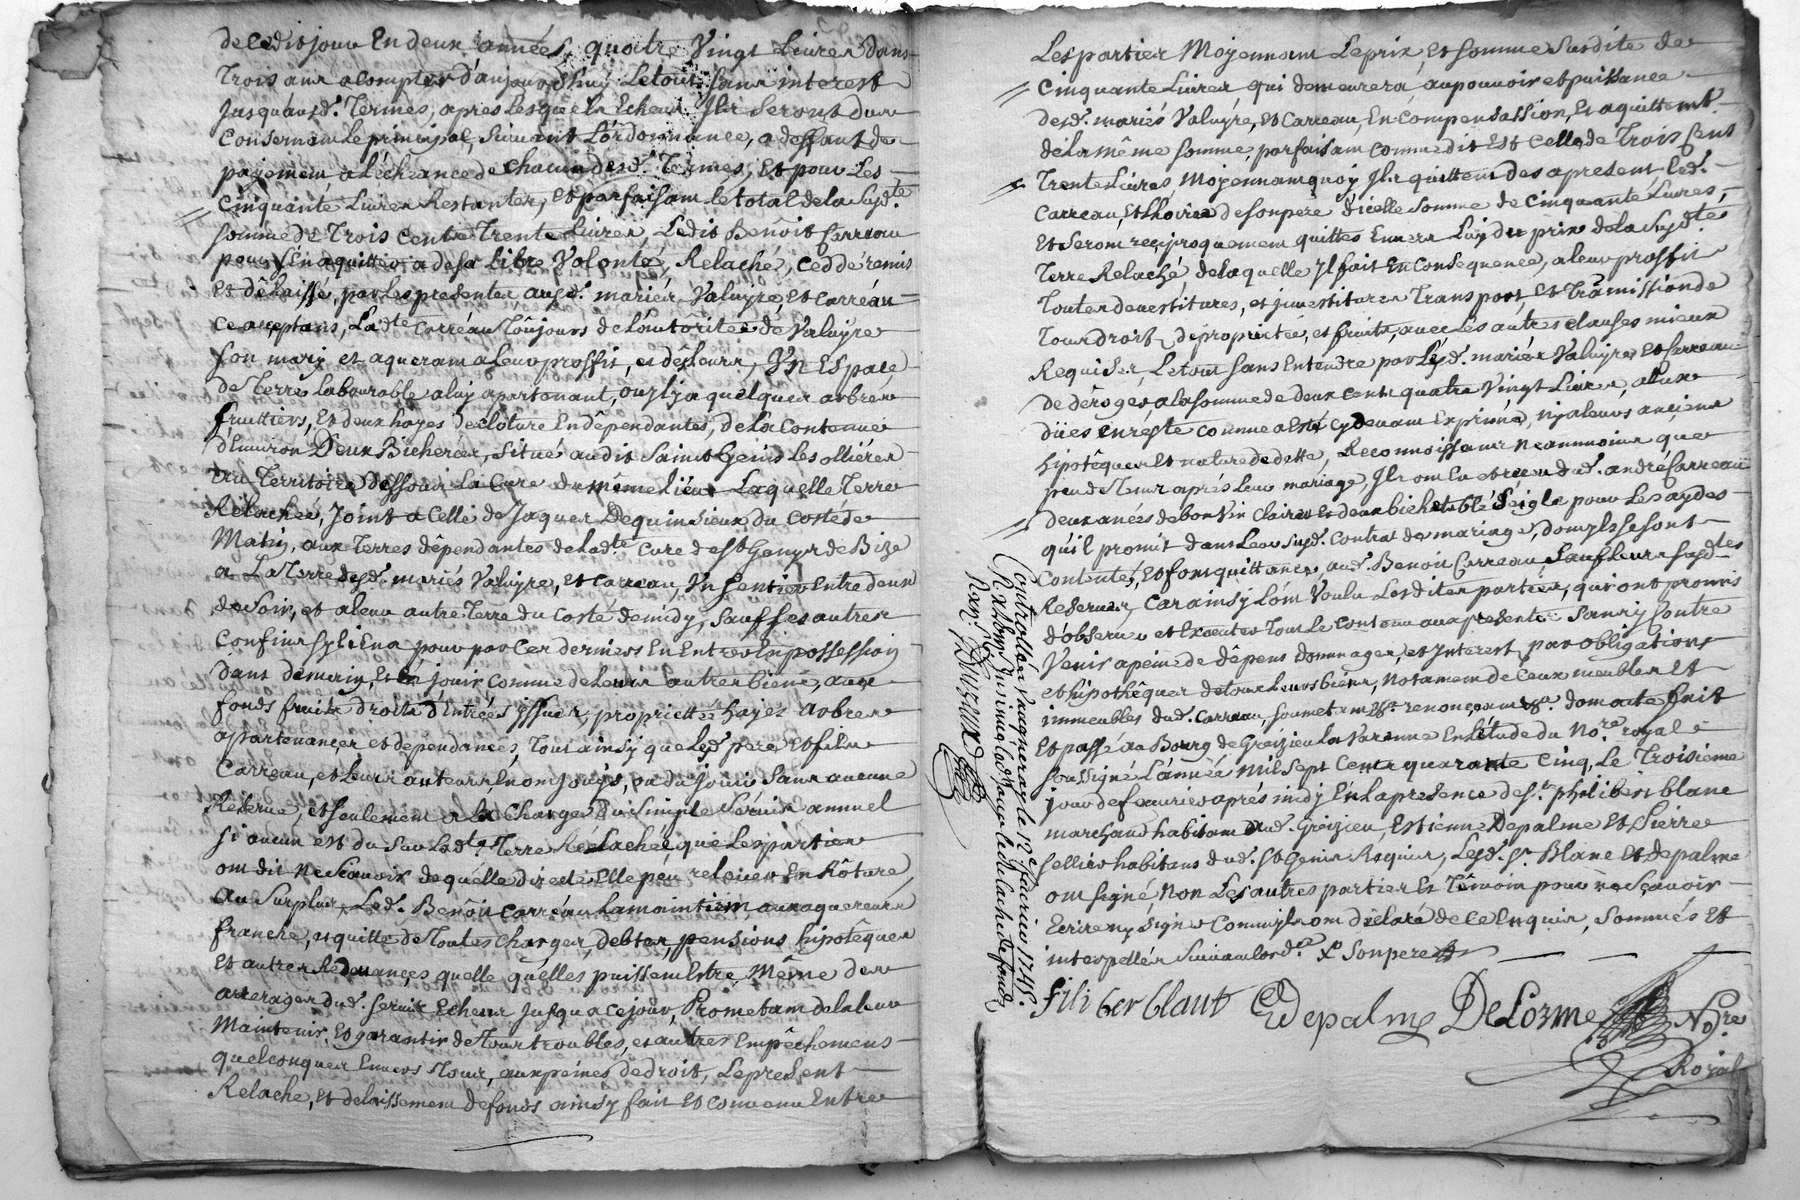 de Cedit jour En deux années, quatre Vingt Livres dans
Trois ans a compter d'aujourd'huy Le tout sans interest
Jusqu'ausd. Termes, apres Lesquels En Echeus Ils Seront dus
Conservem Le principal, Suivant L'ordonnance, a deffaut de
payement a L'échéance de chacun desd. Termes, Et pour Les
Cinquante Livres Restantes, et parfaisam Le total de la Susd.te
somme de Trois Cents Trente Livres Ledit Benoît Carreau
pour s'En aquitter a de sa Libre Volonté, Relaché, ceddé remis
Et délaissé, par les presentes ausd. mariés Valuyre, et Carreau
ce aceptans, Lad.te Carreau Toûjours de L'autôritée de Valuyre
son mary et aqueram a leur proffit, et des leurs, Un Espace
de Terre labourable a luy apartenant, ou il y a quelques arbres
fruittiers, Et deux hayes de clôture En dépendantes, de La Contenue
d'Environ Deux Bicherées, Situé audit Saint Genis Les ollières
Au Territoire Dessous La Cure du meme lieu Laquelle Terre
Relachée, Joint a Celle de Jaques Dequinsieux du Costé de
Matin, aux Terres dépendantes de lad.te Cure de St Genys de Bize
a La Terre desd. mariés Valuyre, et Carreau, Un Sentier Entre deux
de Soir, et a leur autre Terre du Costé de midy, Sauf Ses autres
Confins Sy il En a pour par Ces derniers En Entrer En possession
dans demain, Et En jouir Comme de Leurs autres biens, aux
fonds fruits droits d'Entrées issues, propriettée hayes arbres
apartenances et dépendances, Tout ainsy que Lesd. pere et fils
Carreau, et leurs auteurs En ont jouys, ou du jouir Sans aucune
Réserve, et seulement a la Charge Du Simple Servis annuel
Si aucun est du Sur Lad.te Terre Rélachée, que Les parties
ont dit ne Scavoir de quelle directe Elle peu relever En Rôture
Au Surplus, Led. Benoît Carréau La maintient, aux aquereurs
franche, et quitte de Toutes Charges, debtes, pensions hipotêques
Et autres Redevances, quelle qu'elles puissent Estre, Même des
arrerages dud. Servis Echeus Jusqu'a ce jour, Prometam de la leur
Maintenir Et garantir de Tous troubles, et autres Empêchemens
quelconques Envers Tous, aux peines de droit, Le present
Relache, et delaissement de fonds ainsy fait Et Convenu Entre
Les parties Moyennant Le prix, Et Somme Susdite de
Cinquante Livres qui demeurera, au pouvoir et puissance
desd. mariés Valuyre, Et Carreau, En Compensassion, Et aquittemt
de la même Somme, parfaisam comme dit Est celle de Trois Cent
Trente Livres Moyennam quoy Ils quittent des a present Led.
Carreau, Et L'hoirie de son pere d'icelle Somme de Cinquante Livres,
Et Seront reciproquement quittes Envers Luy du prix de la Susd.te
Terre Relaché de laquelle Il fait En Consequence, a leur proffit
Toutes devestitures, et investitures Transport, Et Tramission de
Tous droits de propriettée, et fruits, avec Les autres clauses mieux
Requises, Le tout Sans Entendre par Lesd. mariés Valuyre et Carreau
de dêroger a la Somme de deux Cents quatre Vingt Livres, a Eux
dües En reste comme a esté cy devant Exprimé, ny a leurs anciens
hipotêques Et nature de dette, Reconnoissans Neanmoins, que
peu de Tems aprés leur mariage, Ils ont Eu et receu dud. andré Carreau
deux anées de bon Vin Clairet Et deux bichets blé Seigle pour Les aydes
qu'il promit dans Leur Susd. Contrat de mariage, dont Ils Se sont
Contentés, Et font quittance, aud. Benoit Carreau, Sauf leurs Susd.tes
Réserves, Car ainsy L'ont Voulu Lesdites parties, qui ont promis
d'observer et Executer Tout Le Contenu aux presentes Sans y Contre
Venir a peine de dépens dommages, et Interest par obligations
et hipothêques de tous Leurs biens, Notament de Ceux meubles Et
immeubles dud. Carreau, soumetans renonçans dont acte fait
Et passé au Bourg de Greizieu La Varenne En L'étude du No.re royal
Soussigné L'année Mil Sept Cents quarante Cinq, Le Troisième
jour de feuvrier aprés midy En La presence de Sr philibert blanc
marchand habitam aud. Greizieu, Estienne Depalme Et Pierre
Sellier habitans dud. St Genis Requis, Lesd. Sr Blanc Et depalme
ont Signé, Non Les autres parties Et Têmoin pour ne Sçavoir
Ecrire ny Signer Comm'ils ont déclaré de ce Enquis, Sommés Et
interpellés Suivan Lord.ce X Son pere
filiber blanc Edepalme DeLorme No.re
Royal
Controllé a Vaugneray le 12e feurier 1745